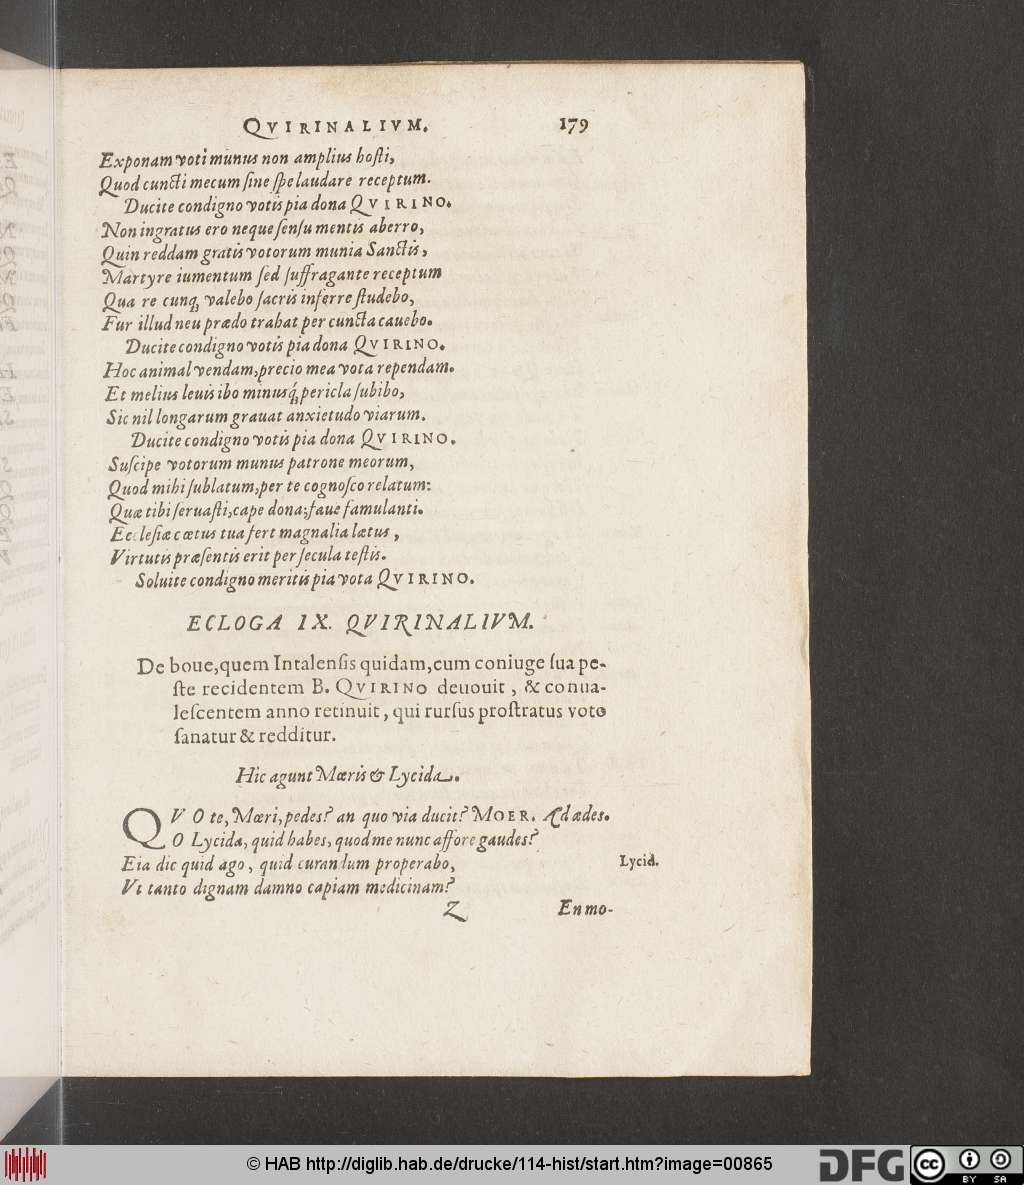 QVIRINALIVM. 179
Exponam voti munus non amplius hosti,
Quod cuncti mecum sine spe laudare receptum.
Ducite condigno votis pia dona QVIRINO.
Non ingratus ero neque sensu mentis aberro,
Quin reddam gratis votorum munia Sanctis,
Martyre iumentum sed suffragante receptum
Qua re cunq; valebo sacris inferre studebo,
Fur illud neu prædo trahat per cuncta cauebo.
Ducite condigno votis pia dona QVIRINO.
Hoc animal vendam, precio mea vota rependam.
Et melius leuis ibo minusq́; pericla subibo,
Sic nil longarum grauat anxietudo viarum.
Ducite condigno votis pia dona QVIRINO.
Suscipe votorum munus patrone meorum,
Quod mihi sublatum, per te cognosco relatum:
Quæ tibi seruasti, cape dona; faue famulanti.
Ecclesiæ cœtus tua fert magnalia lætus,
Virtutis præsentis erit per secula testis.
Soluite condigno meritis pia vota QVIRINO.
ECLOGA IX. QVIRINALIVM.
De boue, quem Intalensis quidam, cum coniuge sua pe-
ste recidentem B. QVIRINO deuouit, & conua-
lescentem anno retinuit, qui rursus prostratus voto
sanatur & redditur.
Hic agunt Mœris & Lycida.
QVO te, Mœri, pedes? an quo via ducit? MOER. Ad ædes.
O Lycida, quid habes, quod me nunc affore gaudes?
Eia dic quid ago, quid curandum properabo, Lycid.
Vt tanto dignam damno capiam medicinam?
Z En mo-
© HAB http://diglib.hab.de/drucke/114-hist/start.htm?image=00865
DFG cc BY SA